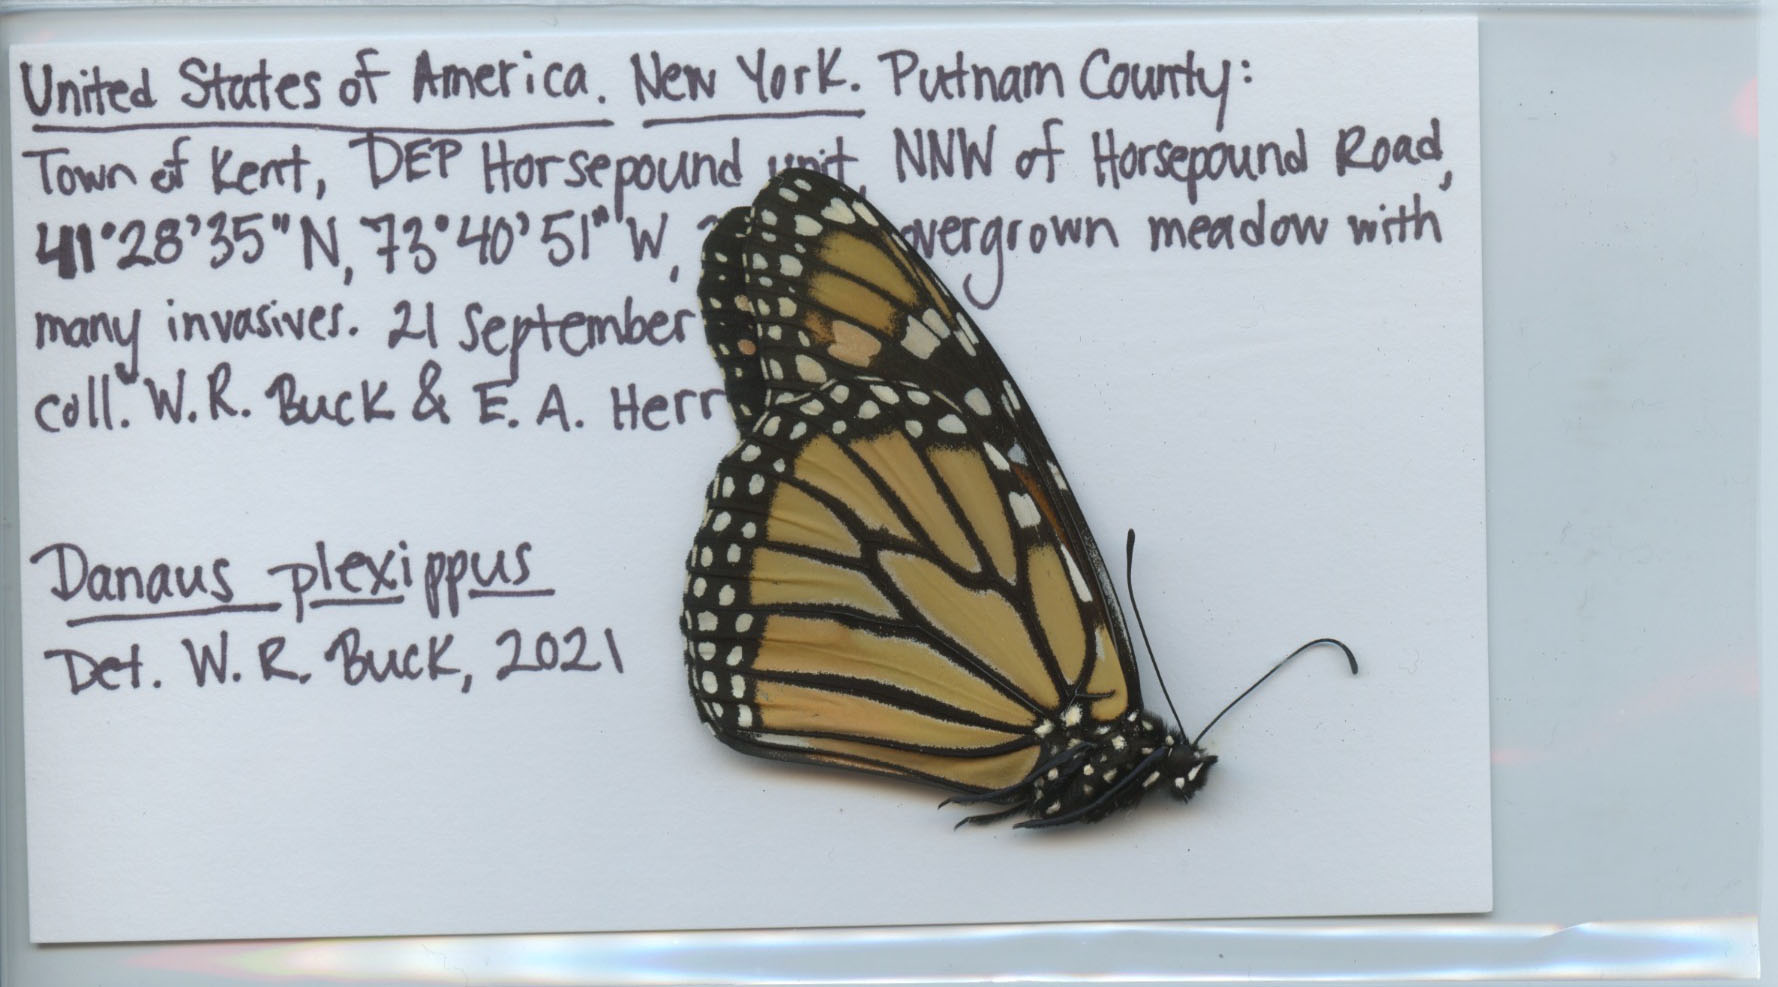 United States of America. New York. Putnam County:
Town of Kent, DEP Horsepound unit, NNW of Horsepound Road,
41°28'35"N, 73°40'51"W, overgrown meadow with
many invasives. 21 September
coll. W.R. Buck & E. A. Herr
Danaus plexippus
Det. W. R. Buck, 2021